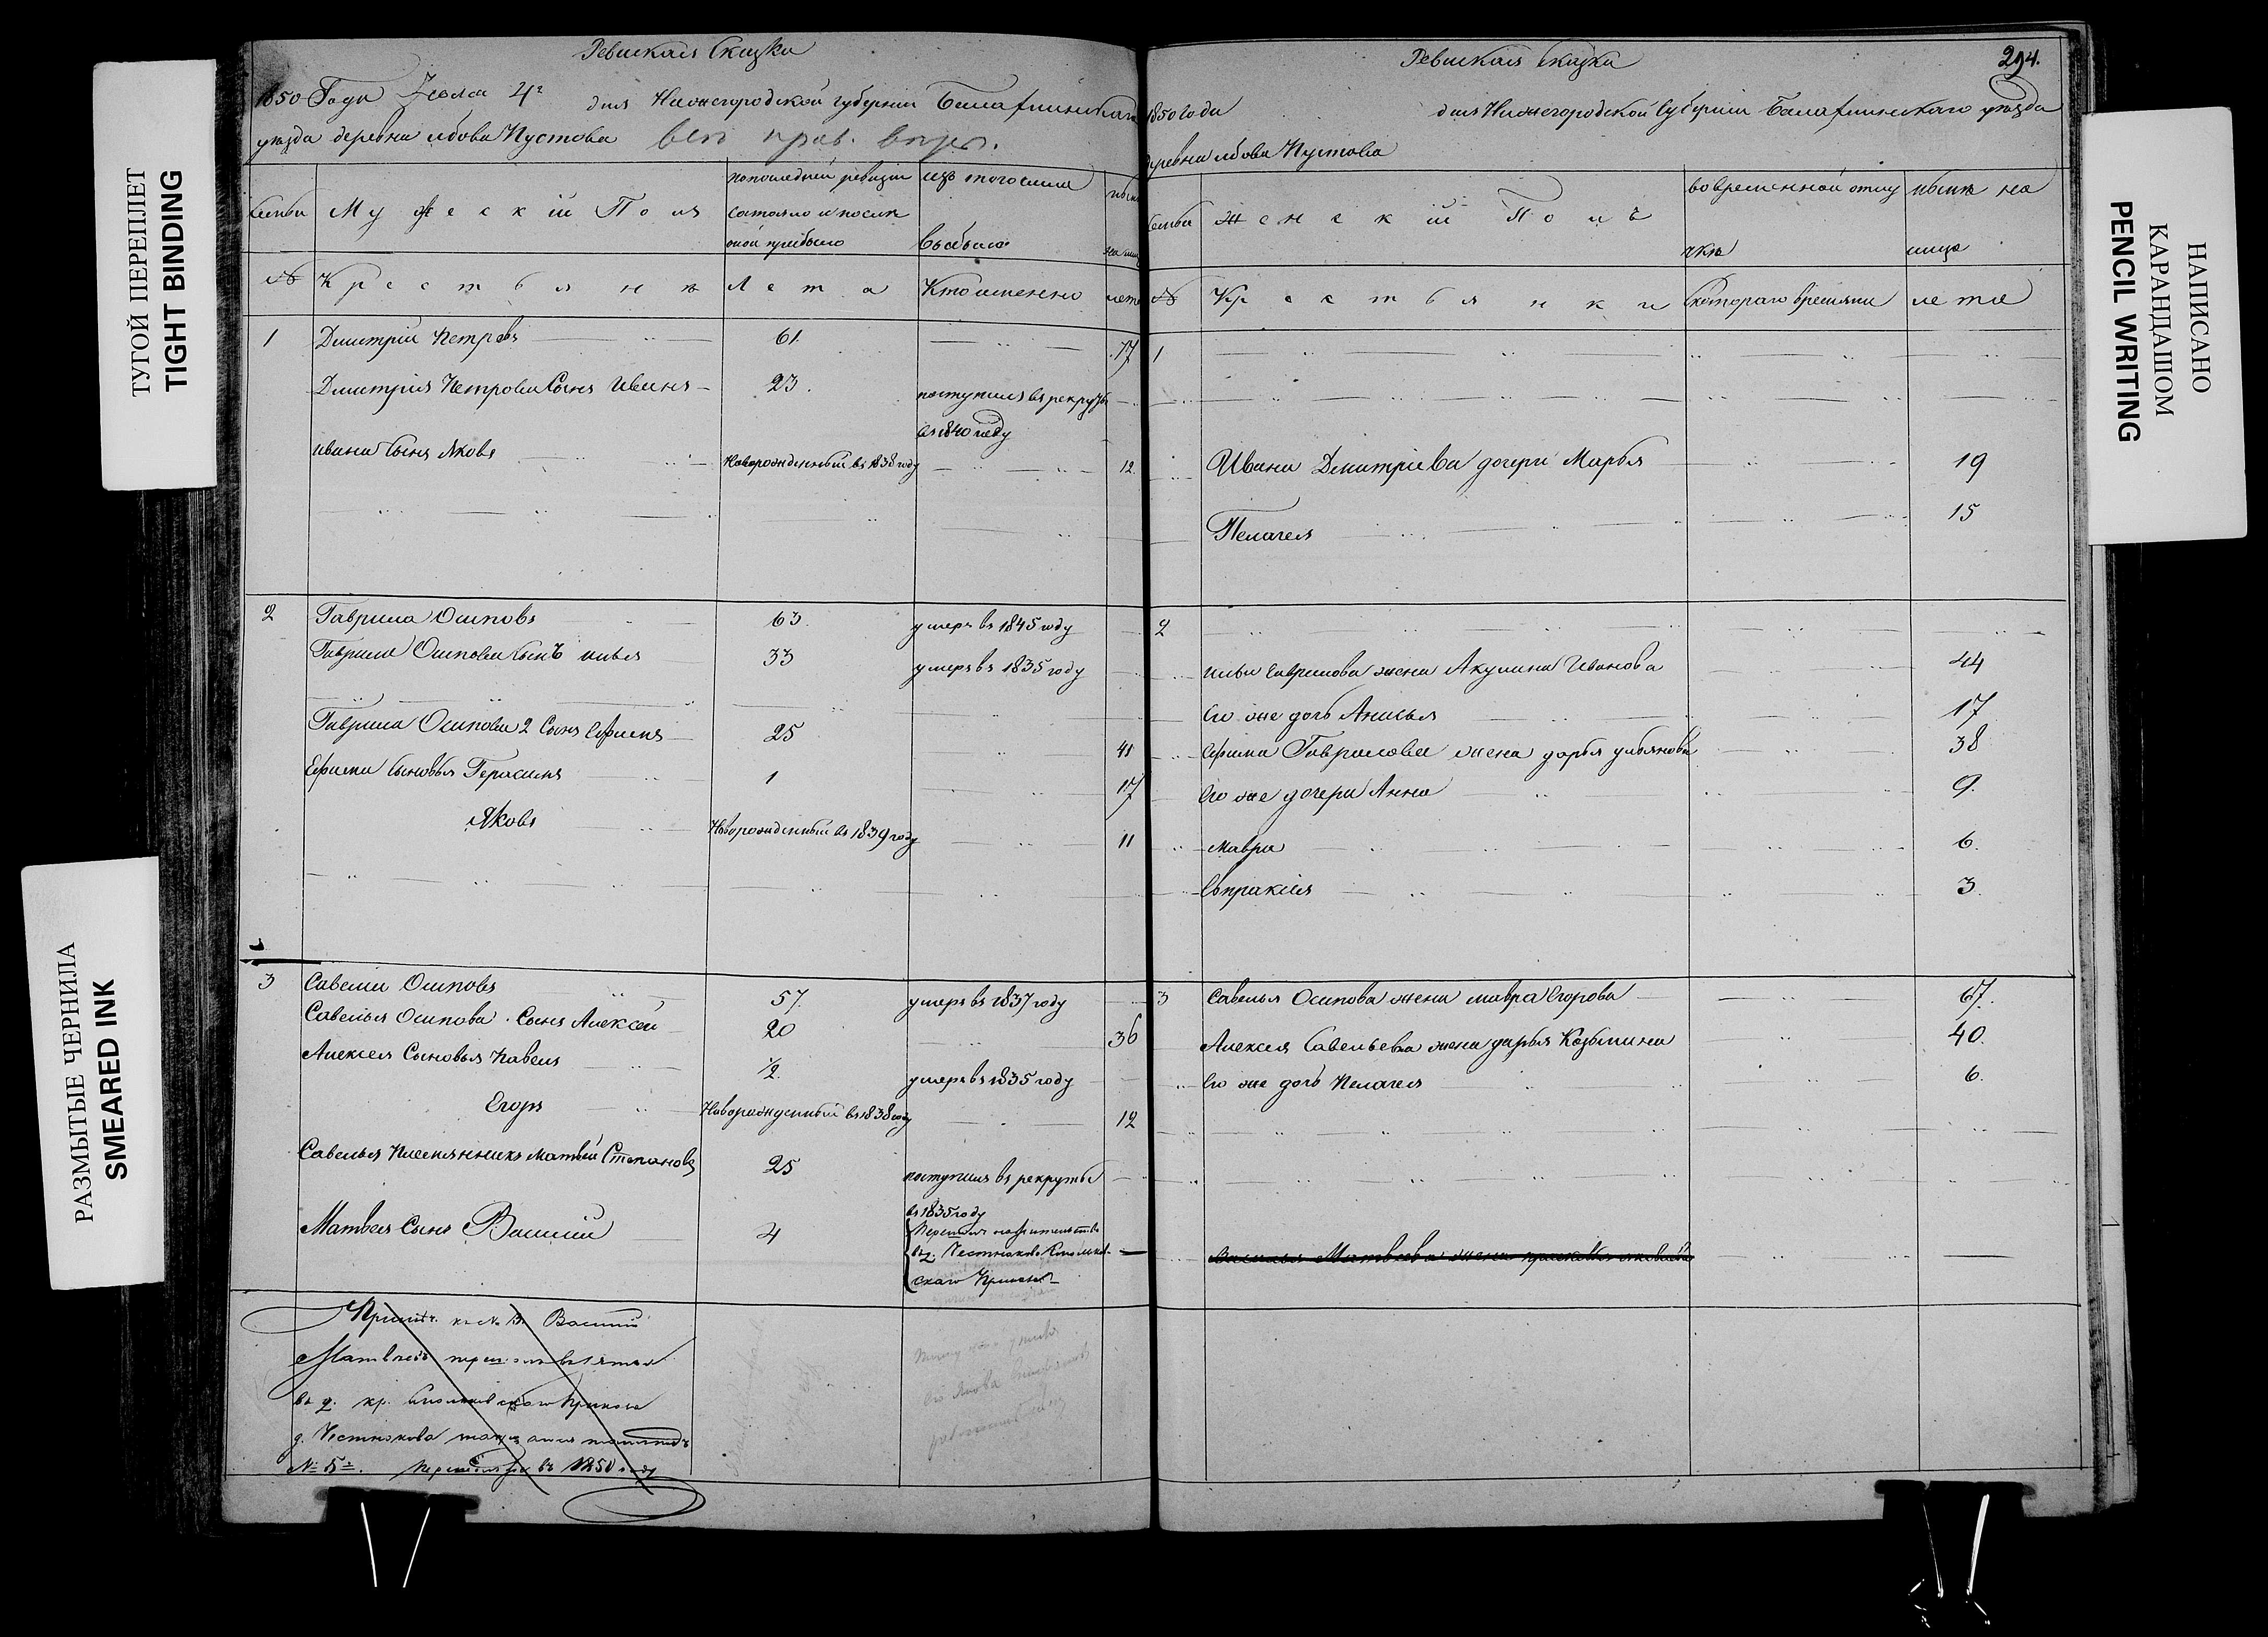 ТУГОЙ ПЕРЕПЛЕТ
TIGHT BINDING
РАЗМЫТЫЕ ЧЕРНИЛА
SMEARED INK
Ревиская Сказка
1850 Года Июля 4го дня Нижегородской губернии Балахнинскаго
уезда деревни Пустова
Семьи Мужескiй Полъ по последней ревизiи состояло и после оной прибыло изъ того числа выбыло ныне на лицо
№ Крестьяне Лета Кто именно лета
1 Дмитрiй Петровъ 61. 77
Дмитрiя Петрова Сынъ Иванъ 23. поступилъ въ рекруты
въ 1840 году
Ивана Сынъ Яковъ Новорожденный въ 1838 году 12
2 Гаврила Осиповъ 63 умеръ въ 1845 году
Гаврила Осипова Сынъ Илья 33 умеръ въ 1835 году
Гаврила Осипова 2 Сынъ Ефимъ 25 41
Ефима Сыновья Герасимъ 1 17
Яковъ Новорожденный въ 1839 году 11
3 Савелiй Осиповъ 57 умеръ въ 1837 году
Савелья Осипова Сынъ Алексей 20 36
Алексея Сыновья Павелъ 1/2 умеръ въ 1835 году
Егоръ Новорожденный въ 1838 году 12
Савелья Племянникъ Матвей Степановъ 25 поступилъ въ рекруты
въ 1835 году
Матвея Сынъ Василiй 4
въ д.
скаго
къ № 3. Василiй
Матвеевъ
въ д. кр.
д.
№ 5 въ 1850 году
Ревиская Сказка 294.
1850 Года дня Нижегородской Губернiи Балахнинскаго уезда
деревни Пустова
Семьи Женскiй Полъ во временной отлучке ныне на лицо
№ Крестьянки Съ котораго времени лета
1
Ивана Дмитрiева дочери Марья 19
Пелагея 15
2
Ильи Гаврилова жена Акулина Иванова 44
Его же дочь Анисья 17
Ефима Гаврилова жена Дарья Ульянова 38
Его же дочери Анна 9.
Мавра 6.
Евпраксiя 3.
3 Савелья Осипова жена Мавра Егорова 67.
Алексея Савельева жена Дарья Козьмина 40.
Его же дочь Пелагея 6.
Василья Матвеева жена
НАПИСАНО
КАРАНДАШОМ
PENCIL WRITING